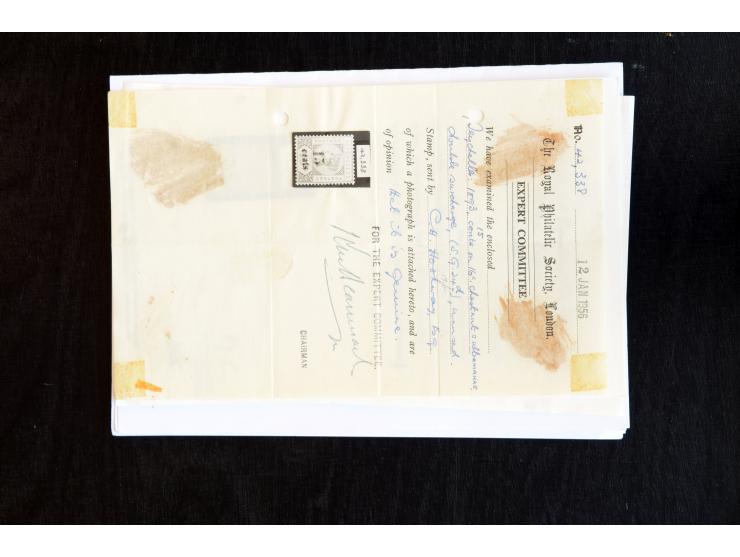 No. 42,338
12 JAN 1956
The Royal Philatelic Society, London.
EXPERT COMMITTEE
We have examined the enclosed
Seychelles 1893, 15 cents on 16c. chestnut & ultramarine,
double surcharge, (S.G. ), unused.
Stamp, sent by C.H. Esq.
of which a photograph is attached hereto, and are
of opinion that it is genuine.
FOR THE EXPERT COMMITTEE,
CHAIRMAN
42,338
15
cents